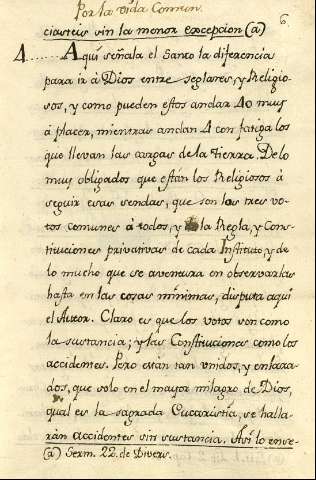 Por la vida Comun.
6
ciasteis sin la menor excepcion (a)
4...... Aqui señala el Santo la diferencia
para ir à Dios entre seglares, y Religio-
sos, y como pueden estos andar 40 mui
à placer, mientras andan 4 con fatiga los
que llevan las cargas de la tierra. Delo
mui obligados que están los Religiosos à
seguir esas sendas, que son los tres vo-
tos comunes à todos, y la Regla, y Cons-
tituciones privativas de cada Instituto, y de
lo mucho que se aventura en observarlas
hasta en las cosas minimas, disputa aqui
el Autor. Claro es que los votos son como
la sustancia; y las Constituciones como los
accidentes. Pero están tan unidos, y enlaza-
dos, que solo en el mayor milagro de Dios,
qual es la sagrada Eucaristia, se halla-
rán accidentes sin sustancia. Asi lo ense-
(a) Serm. 22. de Divers.